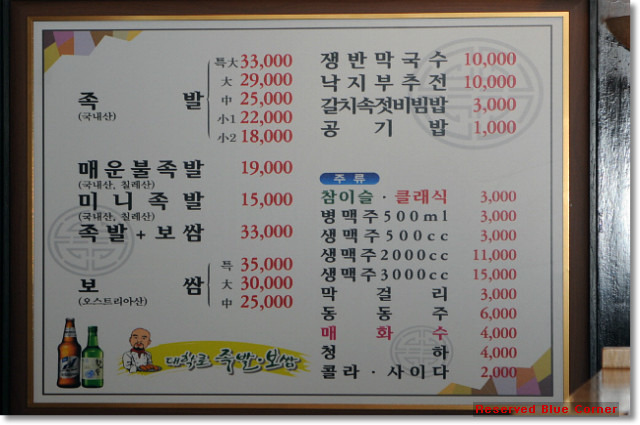 족 발
(국내산)
特大 33,000
大 29,000
中 25,000
小1 22,000
小2 18,000
매운불족발 19,000
(국내산, 칠레산)
미니족발 15,000
(국내산, 칠레산)
족발+보쌈 33,000
보 쌈
(오스트리아산)
특 35,000
大 30,000
中 25,000
대학로 족발·보쌈
쟁반막국수 10,000
낙지부추전 10,000
갈치속젓비빔밥 3,000
공기밥 1,000
주류
참이슬·클래식 3,000
병맥주500ml 3,000
생맥주500cc 3,000
생맥주2000cc 11,000
생맥주3000cc 15,000
막걸리 3,000
동동주 6,000
매화수 4,000
청하 4,000
콜라·사이다 2,000
Reserved Blue Corner